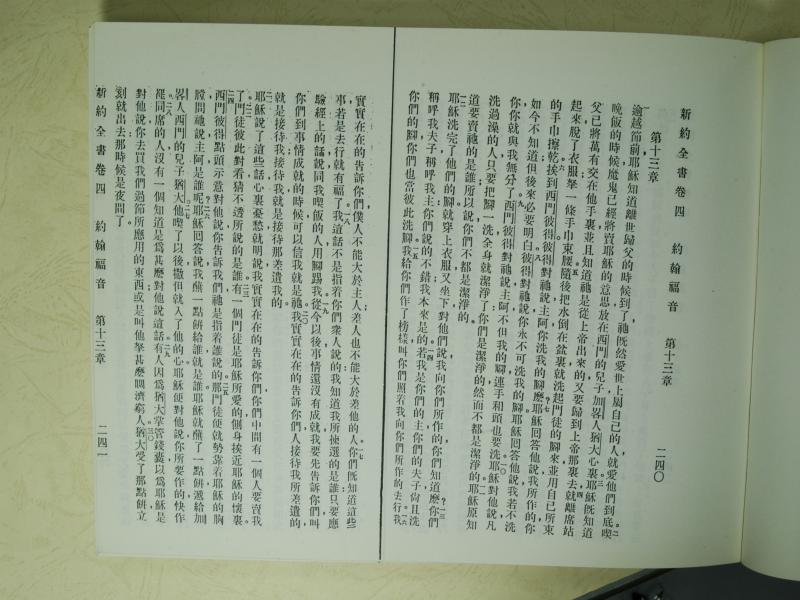 新約全書卷四 約翰福音 第十三章 二四〇
第十三章
逾越節前耶穌知道離世歸父的時候到了祂旣然愛世上屬自己的人就愛他們到底。二喫
晚飯的時候魔鬼已經將賣耶穌的意思放在西門的兒子加畧人猶大心裏。三耶穌旣知道
父已將萬有交在他手裏並且知道祂是從上帝出來的又要歸到上帝那裏去。四就離席站
起來脫了衣服拏一條手巾束腰。五隨後把水倒在盆裏就洗起門徒的腳來並用自己所束
的手巾擦乾。六挨到西門彼得彼得對祂說主阿你洗我的腳麼?七耶穌回答他說我所作的你
如今不知道但後來必要明白。八彼得對祂說你永不可洗我的腳耶穌回答他說我若不洗
你你就與我無分了。九西門彼得對祂說主阿不但我的腳連手和頭也要洗。一〇耶穌對他說凡
洗過澡的人只要把腳一洗全身就潔淨了你們是潔淨的然而不都是潔淨的。一一耶穌原知
道要賣祂的是誰所以說你們不都是潔淨的。
一二耶穌洗完了他們的腳就穿上衣服又坐下對他們說我向你們所作的你們知道麼?一三你們
稱呼我夫子稱呼我主你們說的不錯我本來是的。一四若我是你們的主你們的夫子尙且洗
你們的腳你們也當彼此洗腳。一五我給你們作了榜樣叫你們照着我向你們所作的去行。一六我
實實在在的告訴你們僕人不能大於主人差人也不能大於差他的人。一七你們旣知道這些
事若是去行就有福了。一八我這話不是指着你們衆人說的我知道我所揀選的是誰只要應
驗經上的話說同我喫飯的人用腳踢我。一九從今以後事情還沒有成就我要先告訴你們叫
你們到事情成就的時候可以信我就是祂。二〇我實實在在的告訴你們有人接待我所差遣的
就是接待我接待我就是接待那差遣我的。
二一耶穌說了這些話心裏憂愁就明說我實實在在的告訴你們你們中間有一個人要賣我
了。二二門徒彼此對看猜不透所說的是誰。二三有一個門徒是耶穌所愛的側身挨近耶穌的懷裏。
二四西門彼得點頭示意對他說你告訴我們祂是指着誰說的。二五那門徒便就勢靠着耶穌的胸
膛問祂說主阿是誰呢?二六耶穌回答說我蘸一點餅給誰就是誰耶穌就蘸了一點餅遞給加
畧人西門的兒子猶大。二七他喫了以後撒但就入了他的心耶穌便對他說你所要作的快作
罷。二八同席的人沒有一個知道是爲甚麼對他說這話。二九有人因爲猶大掌管錢囊以爲耶穌是
對他說你去買我們過節所應用的東西或是叫他拏甚麼賙濟窮人。三〇猶大受了那點餅立
刻就出去那時候是夜間了。
新約全書卷四 約翰福音 第十三章 二四一